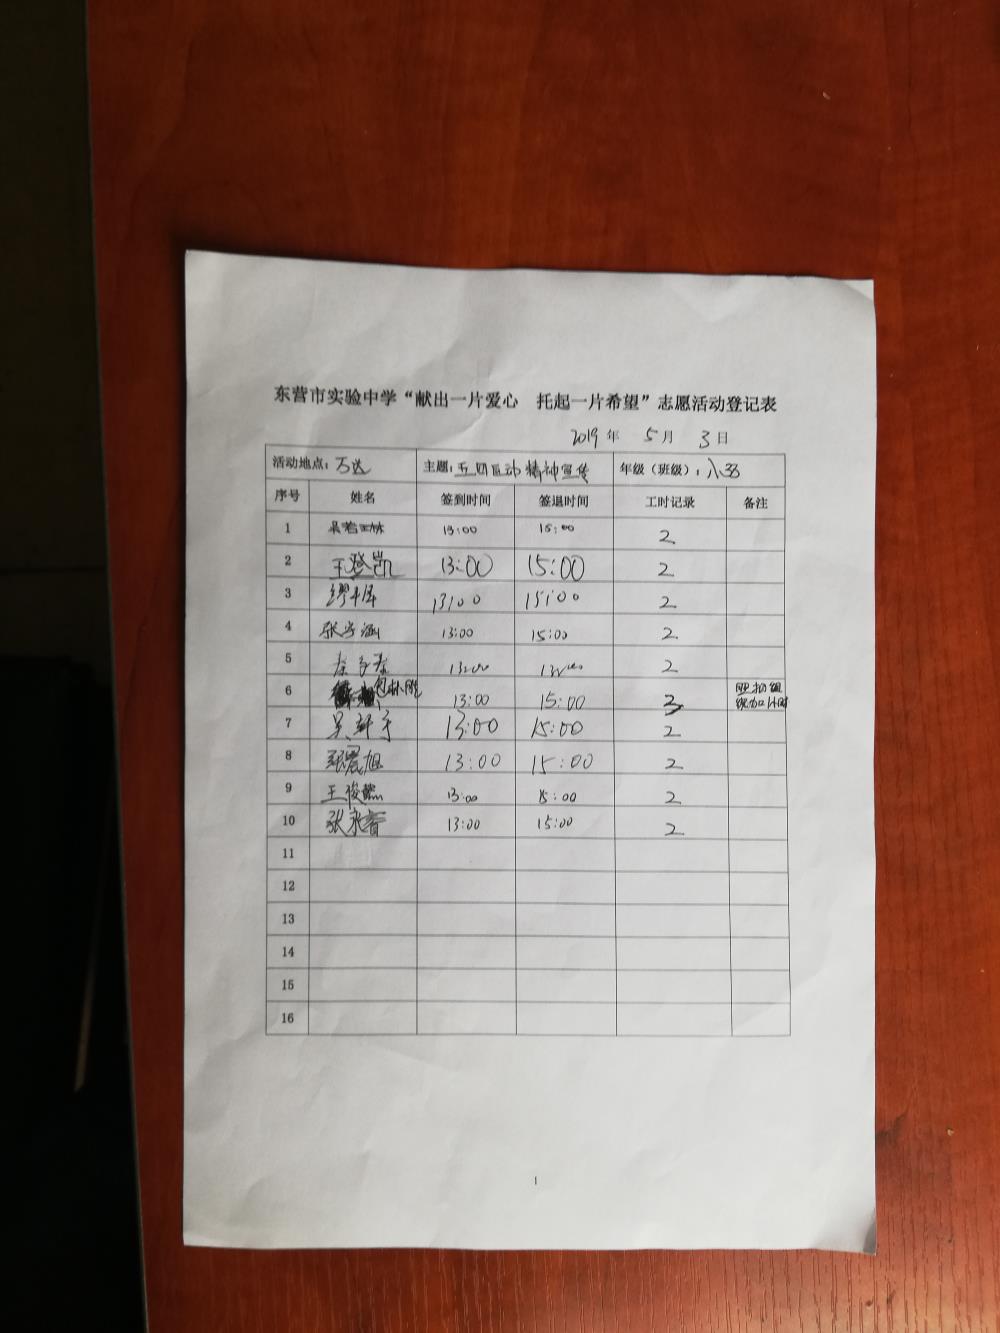 东营市实验中学“献出一片爱心　托起一片希望”志愿活动登记表
2019 年 5 月 3 日
活动地点：万达 主题：五四运动精神宣传 年级（班级）：八33
序号 姓名 签到时间 签退时间 工时记录 备注
1 13:00 15:00 2
2 王登凯 13:00 15:00 2
3 13:00 15:00 2
4 张宇涵 13:00 15:00 2
5 13:00 2
6 13:00 15:00 3
7 吴轩宇 13:00 15:00 2
8 张震旭 13:00 15:00 2
9 王俊懿 13:00 15:00 2
10 张永睿 13:00 15:00 2
11
12
13
14
15
16
1